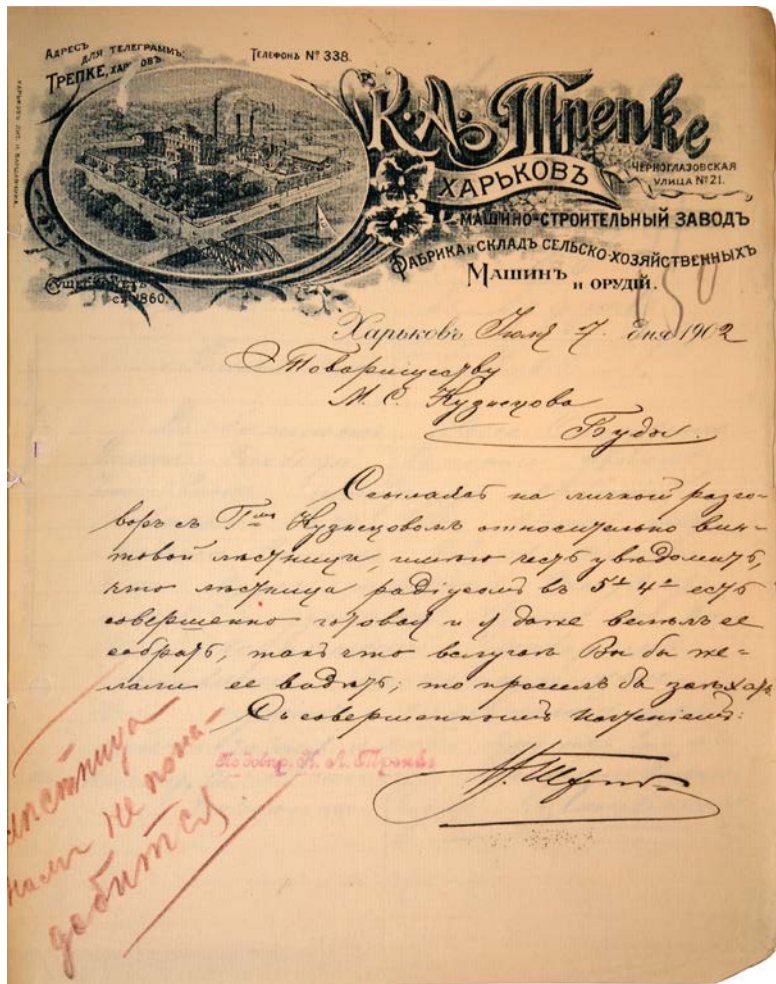 Адресъ
для телеграммъ:
Трепке, Харьковъ.
Телефонъ № 338.
К. А. Трепке
Харьковъ
Черноглазовская
улица № 21.
Машино-строительный заводъ
Фабрика и складъ сельско-хозяйственныхъ
Машинъ и орудій.
Существуетъ
съ 1860.
150
Харьковъ Іюля 7 дня 1902
Товариществу
М. С. Кузнецова
Буды.
Ссылаясь на личный разго-
воръ съ Гмъ Кузнецовомъ относительно вин-
товой лѣстницы, имѣю честь увѣдомить,
что лѣстница радіусомъ въ 5' 4" есть
совершенно готовая и я даже велѣлъ ее
собрать, такъ что вслучаѣ Вы бы же-
лали ее видѣть, то просилъ бы заѣхать
Съ совершеннымъ почтеніемъ:
По довѣр. К. А. Трепке
лѣстница
нам не пона-
добится